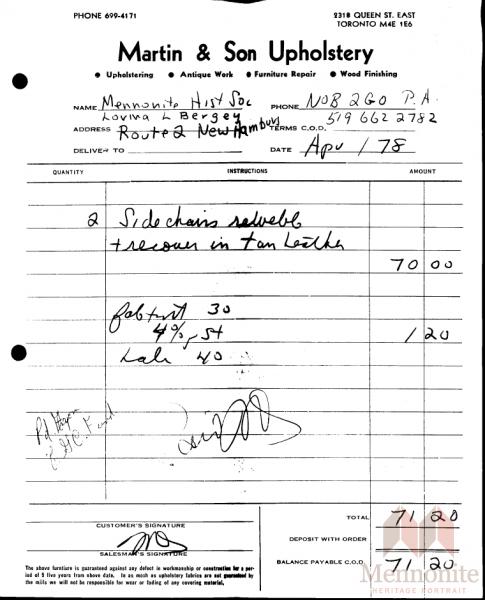 PHONE 699-4171
2318 QUEEN ST. EAST
TORONTO M4E 1E6
Martin & Son Upholstery
● Upholstering ● Antique Work ● Furniture Repair ● Wood Finishing
NAME Mennonite Hist Soc PHONE N0B 2G0 P.A.
Lovina L Bergey 519 662 2782
ADDRESS Route 2 New Hamburg TERMS C.O.D.
DELIVER TO DATE Apr 1/78
QUANTITY INSTRUCTIONS AMOUNT
2 Side chairs rewebb
+ recover in tan leather
70 00
30
4% St 1 20
40
Pd
TOTAL 71 20
CUSTOMER'S SIGNATURE
DEPOSIT WITH ORDER
SALESMAN'S SIGNATURE
BALANCE PAYABLE C.O.D. 71 20
The above furniture is guaranteed against any defect in workmanship or construction for a per-
iod of 5 five years from above date. In as much as upholstery fabrics are not guaranteed by
the mills we will not be responsible for wear or fading of any covering material.
Mennonite
HERITAGE PORTRAIT